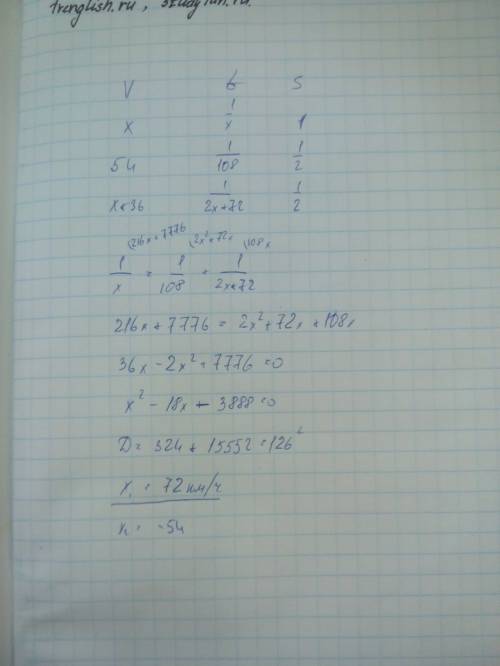 trenglish.ru, studyfun.ru.
V t S
x 1/x 1
54 1/108 1/2
x+36 1/2x+72 1/2
(216x+7776 (2x²+72x (108x
1/x = 1/108 + 1/2x+72
216x + 7776 = 2x² + 72x + 108x
36x - 2x² + 7776 = 0
x² - 18x - 3888 = 0
D = 324 + 15552 = 126²
x₁ = 72 км/ч
x₂ = -54